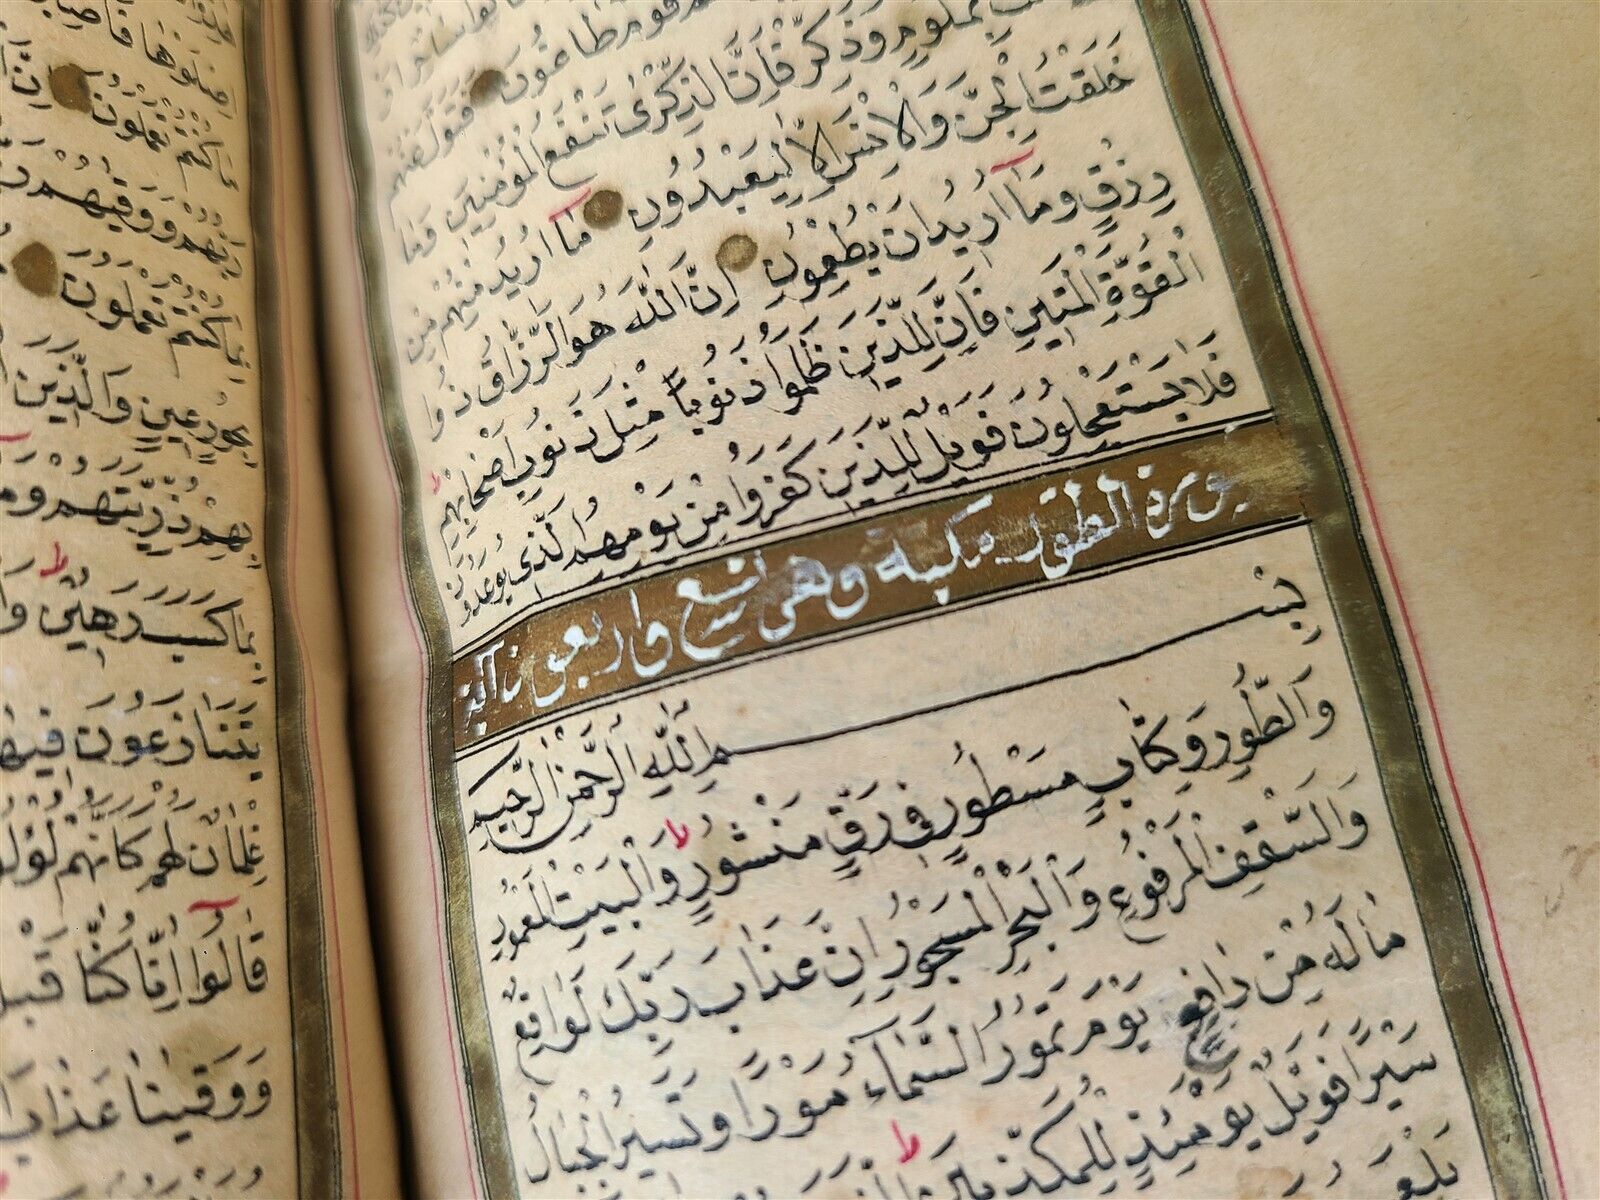 قوم طاغون فتول عنهم
بملوم وذكر فَاِنَّ الذِّكْرٰى تَنْفَعُ الْمُؤْمِنِينَ وَمَا
خَلَقْتُ الْجِنَّ وَالْاِنْسَ اِلَّا لِيَعْبُدُونِ مَٓا اُرِيدُ مِنْهُمْ مِنْ
رِزْقٍ وَمَٓا اُرِيدُ اَنْ يُطْعِمُونِ اِنَّ اللّٰهَ هُوَ الرَّزَّاقُ ذُوا
الْقُوَّةِ الْمَتِينِ فَاِنَّ لِلَّذِينَ ظَلَمُوا ذَنُوبًا مِثْلَ ذَنُوبِ اَصْحَابِهِمْ
فَلَا يَسْتَعْجِلُونَ فَوَيْلٌ لِلَّذِينَ كَفَرُوا مِنْ يَوْمِهِمُ الَّذِى يُوعَدُونَ
سورة الطور مكية وهى تسع واربعون اٰية
بِسْمِ اللّٰهِ الرَّحْمٰنِ الرَّحِيمِ
وَالطُّورِ وَكِتَابٍ مَسْطُورٍ فِى رَقٍّ مَنْشُورٍ وَالْبَيْتِ الْمَعْمُورِ
وَالسَّقْفِ الْمَرْفُوعِ وَالْبَحْرِ الْمَسْجُورِ اِنَّ عَذَابَ رَبِّكَ لَوَاقِعٌ
مَا لَهُ مِنْ دَافِعٍ يَوْمَ تَمُورُ السَّمَٓاءُ مَوْرًا وَتَسِيرُ الْجِبَالُ
سَيْرًا فَوَيْلٌ يَوْمَئِذٍ لِلْمُكَذِّبِينَ
كُنْتُمْ تَعْمَلُونَ
وَوَقٰيهُمْ
كُنْتُمْ تَعْمَلُونَ
بِحُورٍ عِينٍ وَالَّذِينَ
بِهِمْ ذُرِّيَّتَهُمْ
بِمَا كَسَبَ رَهِينٌ
يَتَنَازَعُونَ فِيهَا
غِلْمَانٌ لَهُمْ كَاَنَّهُمْ
قَالُوا اِنَّا كُنَّا قَبْلُ
وَوَقٰينَا عَذَابَ